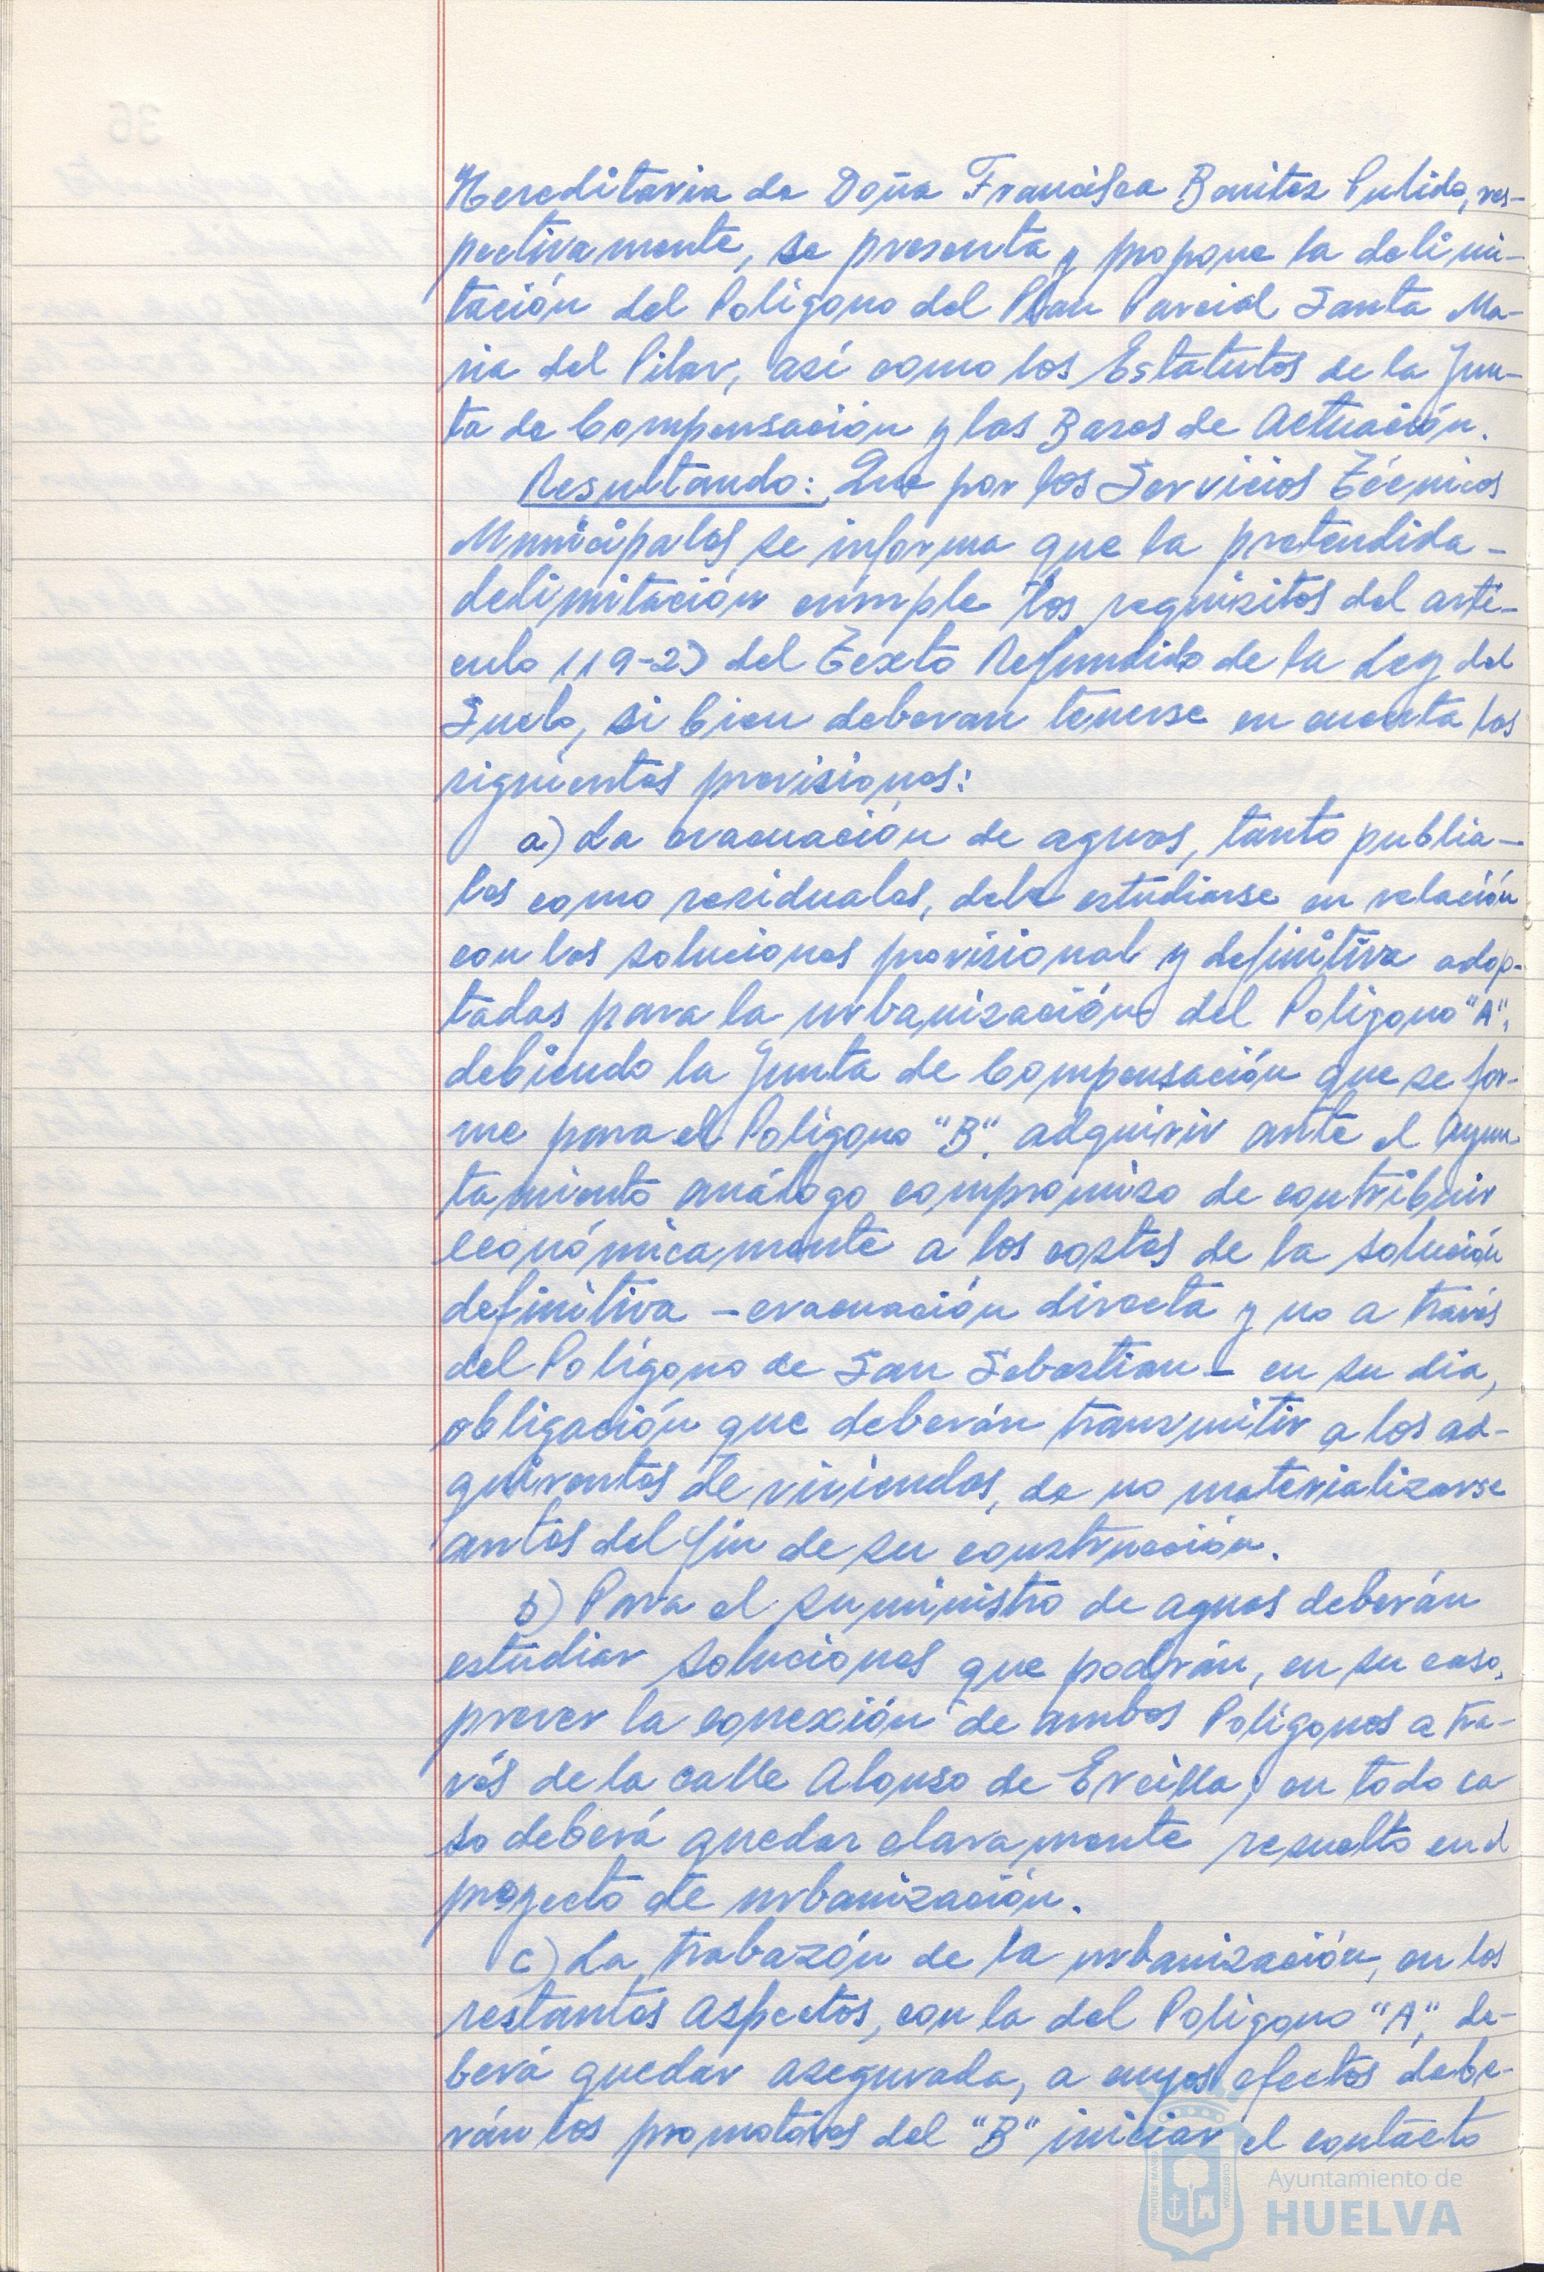 Hereditaria de Doña Francisca Benitez Pulido, res-
pectivamente, se presenta y propone la delimi-
tación del Polígono del Plan Parcial Santa Ma-
ria del Pilar, así como los Estatutos de la Jun-
ta de Compensación y las Bases de Actuación.
Resultando: Que por los Servicios Técnicos
Municipales se informa que la pretendida -
delimitación cumple los requisitos del artí-
culo 119-2) del Texto Refundido de la Ley del
Suelo, si bien deberan tenerse en cuenta las
siguientes previsiones:
a) La evacuación de aguas, tanto publia-
les como residuales, debe estudiarse en relación
con las soluciones provisional y definitiva adop-
tadas para la urbanización del Polígono "A",
debiendo la Junta de Compensación que se for-
me para el Polígono "B", adquirir ante el Ayun-
tamiento análogo compromiso de contribuir
económicamente a los costes de la solución
definitiva - evacuación directa y no a través
del Polígono de San Sebastian - en su dia,
obligación que deberán transmitir a los ad-
quirentes de viviendas, de no materializarse
antes del fin de su construcción.
b) Para el suministro de aguas deberán
estudiar soluciones que podrán, en su caso,
prever la conexión de ambos Polígonos a tra-
vés de la calle Alonso de Ercilla; en todo ca
so deberá quedar claramente resuelto en el
proyecto de urbanización.
c) La trabazón de la urbanización, en los
restantes aspectos, con la del Polígono "A", de-
berá quedar asegurada, a cuyos efectos debe-
rán los promotores del "B" iniciar el contacto
Ayuntamiento de
HUELVA